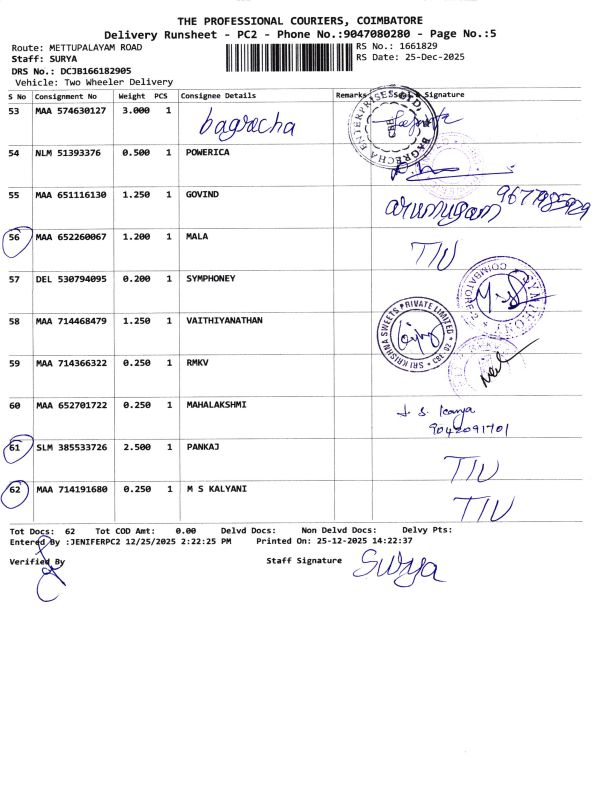 THE PROFESSIONAL COURIERS, COIMBATORE
Delivery Runsheet - PC2 - Phone No.:9047080280 - Page No.:5
Route: METTUPALAYAM ROAD
RS No.: 1661829
Staff: SURYA
RS Date: 25-Dec-2025
DRS No.: DCJB166182905
Vehicle: Two Wheeler Delivery
S No Consignment No Weight PCS Consignee Details Remarks & Signature
53 MAA 574630127 3.000 1 bagrecha
BAGRECHA ENTERPRISES CBE
54 NLM 51393376 0.500 1 POWERICA
55 MAA 651116130 1.250 1 GOVIND arumugam
56 MAA 652260067 1.200 1 MALA TIU
57 DEL 530794095 0.200 1 SYMPHONEY
COIMBATORE
58 MAA 714468479 1.250 1 VAITHIYANATHAN
SRI KRISHNA SWEETS PRIVATE LIMITED
59 MAA 714366322 0.250 1 RMKV
60 MAA 652701722 0.250 1 MAHALAKSHMI
9042091701
61 SLM 385533726 2.500 1 PANKAJ TIU
62 MAA 714191680 0.250 1 M S KALYANI TIU
Tot Docs: 62 Tot COD Amt: 0.00 Delvd Docs: Non Delvd Docs: Delvy Pts:
Entered By :JENIFERPC2 12/25/2025 2:22:25 PM Printed On: 25-12-2025 14:22:37
Verified By Staff Signature Surya